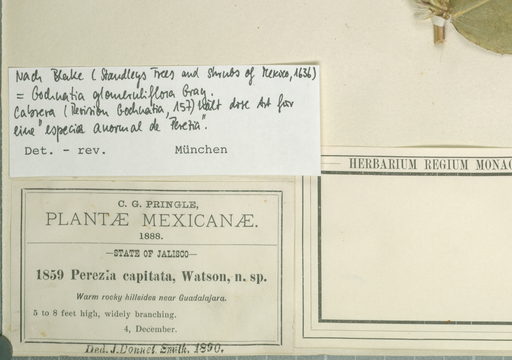 Nach Blake (Standleys Trees and Shrubs of Mexico, 1636)
= Gochnatia glomeruliflora Gray.
Cabrera (Revision Gochnatia, 157) hält diese Art für
eine "especie anormal de Perezia".
Det. - rev. München
HERBARIUM REGIUM MONAC
C. G. PRINGLE,
PLANTÆ MEXICANÆ.
1888.
—STATE OF JALISCO—
1859 Perezia capitata, Watson, n. sp.
Warm rocky hillsides near Guadalajara.
5 to 8 feet high, widely branching.
4, December.
Ded. J. Donnel Smith. 1890.